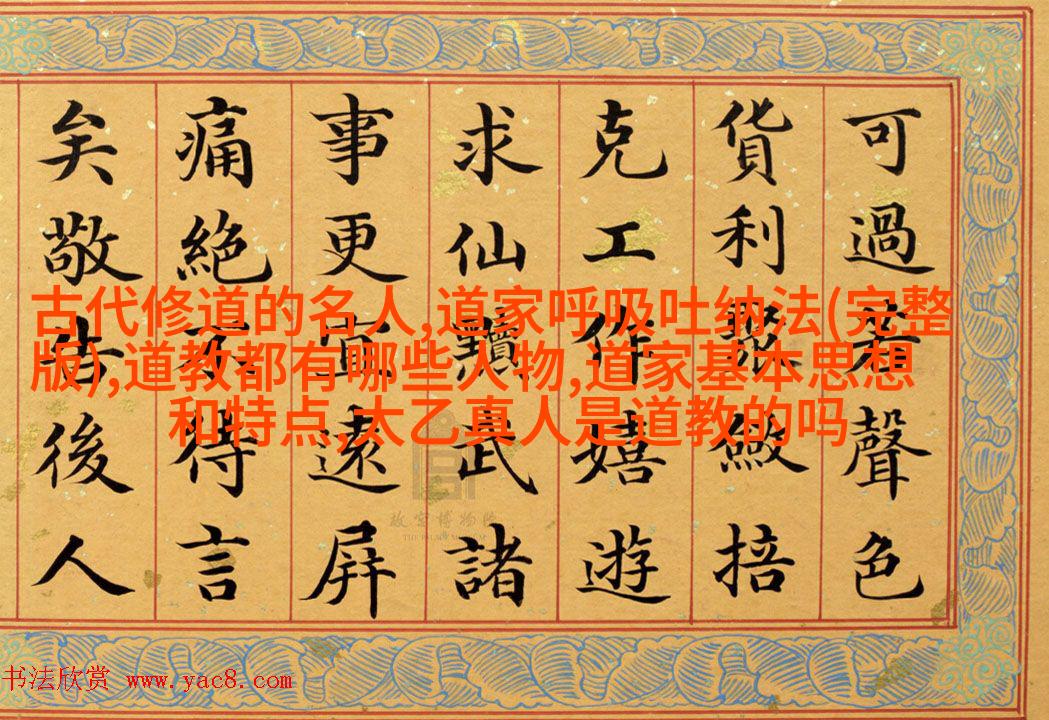 可過若聲色
貨利聚斂掊
克工作嬉遊
求仙黷武諸
事更宜遠屏
痛絕不待言
矣敬告後人
古代修道的名人,道家呼吸吐纳法(完整
版),道教都有哪些人物,道家基本思想
和特点,太乙真人是道教的吗
故宫博物院
THE PALACE MUSEUM
书法欣赏 www.yac8.com